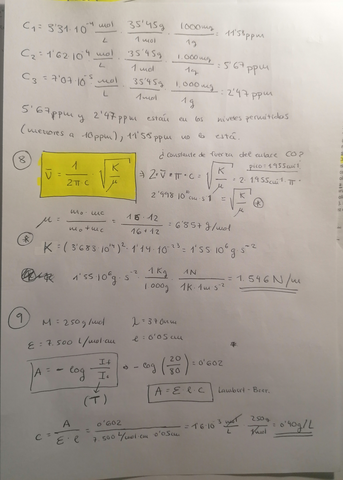 C₁ = 3'31·10⁻⁴ mol/L · 35'45g/1mol · 1000mg/1g = 11'55ppm
C₂ = 1'62·10⁻⁴ mol/L · 35'45g/1mol · 1.000mg/1g = 5'67ppm
C₃ = 7'07·10⁻⁵ mol/L · 35'45g/1mol · 1.000mg/1g = 2'47ppm
5'67ppm y 2'47 ppm están en los niveles permitidos
(menores a 10ppm), 11'55ppm no lo está.
¿constante de fuerza del enlace CO?
⑧ ν̄ = 1/2πc √K/μ
2·ν̄·π·c = √K/μ
μ = mo·mc/mo+mc = 16·12/16+12 = 6'857g/mol
K = 1'55·10⁶ g·s⁻²
1'55·10⁶g·s⁻² · 1Kg/1.000g · 1N/1K·1m·s⁻² = 1.546 N/m
⑨ M = 250g/mol λ = 340nm
ε = 7.500 L/mol·cm l = 0'05cm
A = -log It/I₀ -log (20/80) = 0'602
(T) A = ε l c Lambert-Beer
C = A/ε·l = 0'602/7.500 L/mol·cm 0'05cm = 1'6·10⁻³ mol/L 250g/1mol = 0'40g/L